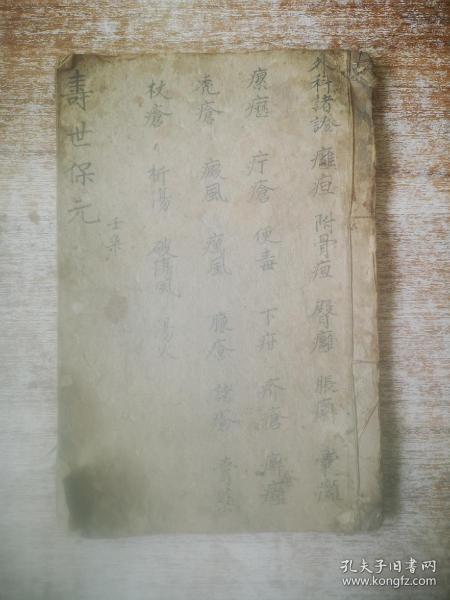 外科諸證 癰疽 附骨疽 臀癰
瘰癧 疔瘡 便毒 下疳 疥瘡 癬瘡
禿瘡 癜風 癘風 臁瘡 諸瘡
杖瘡 折傷 破傷風 湯火
壽世保元
壬集
孔夫子旧书网
www.kongfz.com